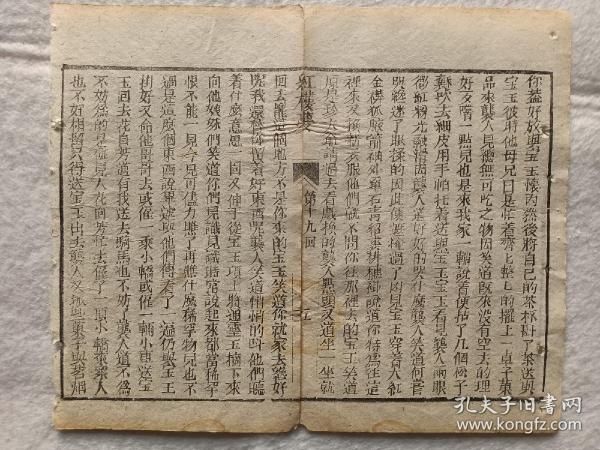 仍蓋好放與寶玉懷內然後將自己的茶杯斟了茶送與
寶玉彼時他母兄已是忙着齊上整上的擺上一桌子菓
品來襲人見總無可吃之物因笑道既來沒有空去的理
好歹嘗一點兒也是來我家一輪說着便拈了幾個松子
瓤吹去細皮用手帕托着送與寶玉寶玉看見襲人兩眼
微紅粉光融滑因襲人好好的哭什麼襲人笑道何嘗
纔迷了眼揉的因此便遮掩過了因見寶玉穿着大紅
金蟒狐腋箭袖外罩石青貂裘排穗褂說道你特為往這
裡來又換新衣服他們就不問你往那裡去的寶玉笑道
原是珍大爺請過去看戲換的襲人點頭又道坐一坐就
紅樓夢
第十九回
五
回去罷這個地方不是你來的寶玉笑道你就家去纔好
呢我還替你留着好東西呢襲人笑道悄悄的叫他們聽
着什麼意思一面又伸手從寶玉項上將通靈玉摘下來
向他姊妹們笑道你們見識見識時常說起來都當希罕
恨不能一見今兒可儘力瞧了再瞧什麼稀罕物兒也不
過是這麼個東西說畢遞與他們傳看了一遍仍與寶玉
掛好又命他哥哥去或僱一乘小轎或僱一輛小車送寶
玉回去花自芳道有我送去騎馬也不妨了襲人道不為
不妨為的是碰見人花自芳忙去僱了一頂小轎來眾人
也不好相留只得送寶玉出去襲人又抓菓子與茗烟
孔夫子旧书网
www.kongfz.com